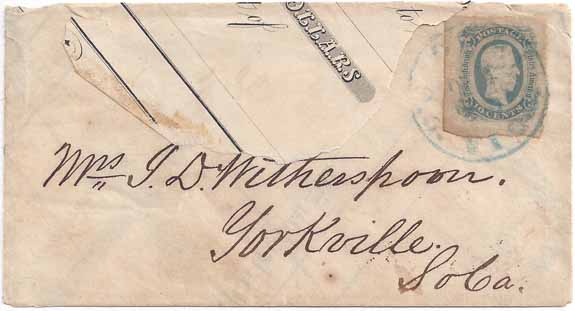 to
of
DOLLARS
POSTAGE
TEN CENTS
Mrs J. D. Witherspoon.
Yorkville.
So Ca.